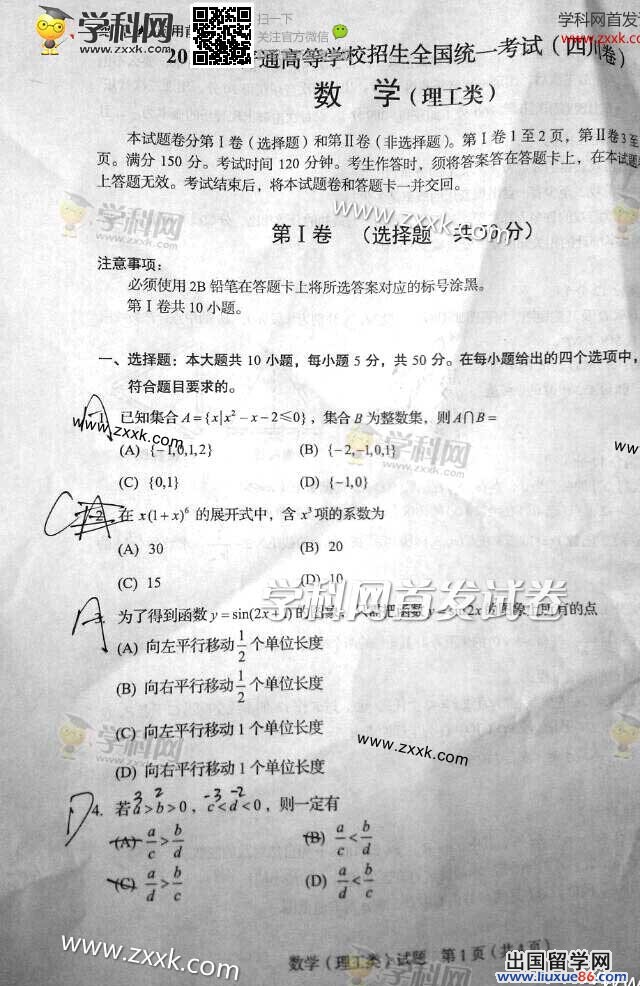 扫一下
关注官方微信
学科网首发
www.zxxk.com
www.zxxk.com
普通高等学校招生全国统一考试（四川卷）
数 学（理工类）
本试题卷分第Ⅰ卷（选择题）和第Ⅱ卷（非选择题）。第Ⅰ卷1至2页，第Ⅱ卷3至
页。满分150分。考试时间120分钟。考生作答时，须将答案答在答题卡上，在本试题
上答题无效。考试结束后，将本试题卷和答题卡一并交回。
学科网
www.zxxk.com
第Ⅰ卷 （选择题 共50分）
注意事项：
必须使用2B铅笔在答题卡上将所选答案对应的标号涂黑。
第Ⅰ卷共10小题。
一、选择题：本大题共10小题，每小题5分，共50分。在每小题给出的四个选项中，
符合题目要求的。
A 1. 已知集合A={x|x²-x-2≤0}，集合B为整数集，则A∩B=
www.zxxk.com
学科网
zxxk.com
(A) {-1,0,1,2} (B) {-2,-1,0,1}
(C) {0,1} (D) {-1,0}
C 2. 在x(1+x)⁶的展开式中，含x³项的系数为
(A) 30 (B) 20
(C) 15 (D) 10
学科网首发试卷
A 为了得到函数y=sin(2x+1)的图象，只需把函数y=sin2x的图象上所有的点
(A) 向左平行移动1/2个单位长度
(B) 向右平行移动1/2个单位长度
(C) 向左平行移动1个单位长度
学科网
zxxk.com
www.zxxk.com
(D) 向右平行移动1个单位长度
3 2 -3 -2
D 4. 若a>b>0，c<d<0，则一定有
(A) a/c>b/d (B) a/c<b/d
(C) a/d>b/c (D) a/d<b/c
学科网
www.zxxk.com
www.zxxk.com
数学（理工类）试题 第1页（共4页）
出国留学网
www.liuxue86.com